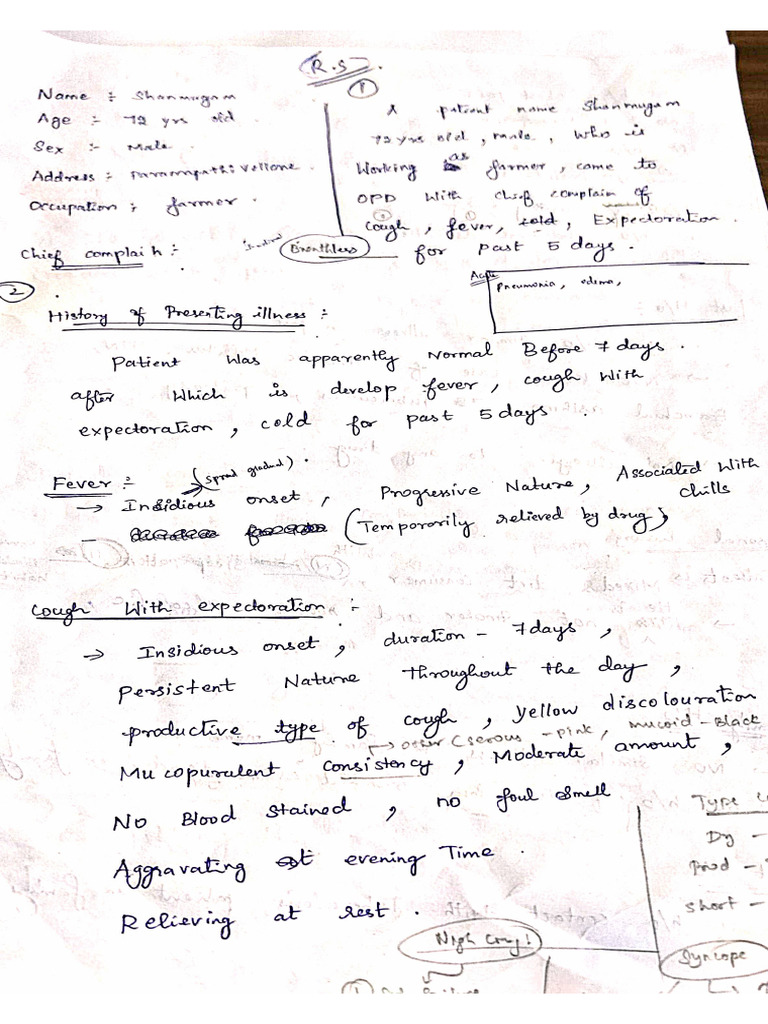 R.S
1
Name :- Shanmugam
Age :- 72 yrs old
Sex :- Male
Address :-
Occupation ; farmer.
A patient name Shanmugam
72 yrs old, male, who is
Working as farmer, came to
OPD With chief complain of
Cough, fever, cold, Expectoration.
for past 5 days.
Chief complaih :-
Breathless
2
Acute
Pneumonia, edema,
History of Presenting illness :-
Patient Was apparently Normal Before 7 days.
after Which is develop fever, cough With
expectoration, cold for past 5 days.
Fever :- (spread gradual).
→ Insidious onset, Progressive Nature, Associated With
chills
(Temporarily relieved by drug),
Cough With expectoration :-
→ Insidious onset, duration - 7 days,
Persistent Nature throughout the day,
productive type of cough, yellow discolouration
→ other (serous - pink, mucoid - Black
Mucopurulent consistency, Moderate amount,
No Blood stained, no foul smell
Aggravating at evening Time.
Relieving at rest.
Type
Dry -
Prod -
Short -
Nigh coug!
Syncope
1